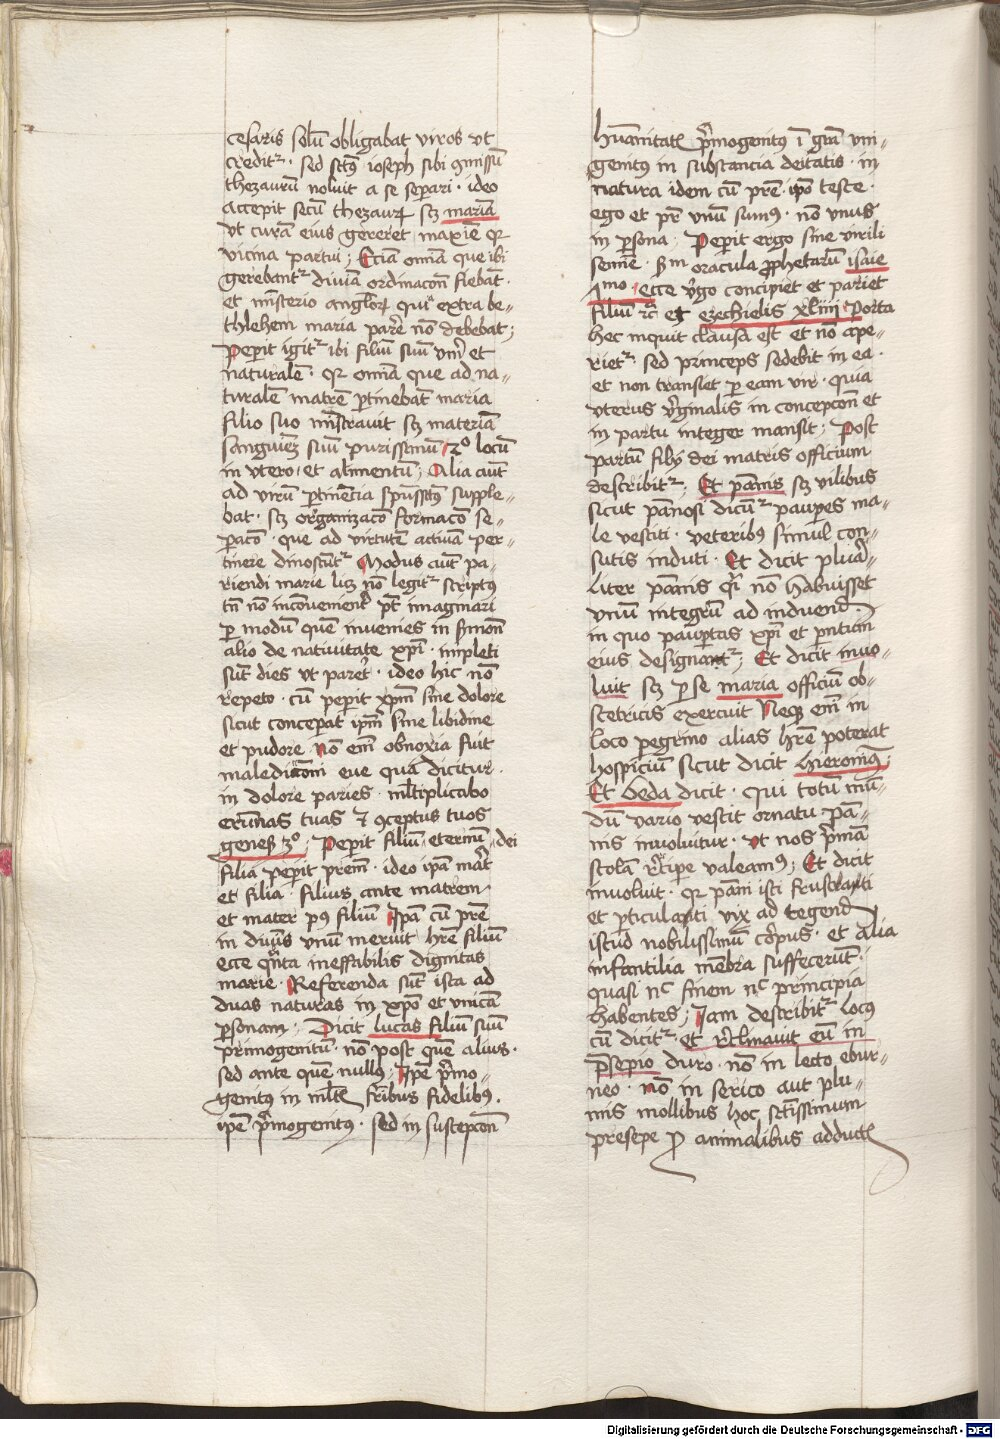 cesaris solū obligabat viros vt
creditᷣ · sed sctūs ioseph sibi ꝯmissū
thezaurū noluit a se separi · ideo
accepit secū thezauꝝ scꝫ mariā
vt curā eius gereret maxīe qꝛ
vicina partui ; Eciā om̄ia que ibi
gerebantᷣ diuīa ordinacōn fiebāt ·
et mīsterio angloꝝ quia extra be-
thlehem maria paꝛe nō debebat ;
Peperit igitᷣ ibi filiū suū vnū et
naturalē · qꝛ om̄ia que ad na-
turalē matrē ꝑtinebāt maria
filio suo mīstrauit scꝫ materiā
sanguinē suū purissimū 2º locū
in vtero · et alimentū ; Alia aūt
ad virū ꝑtinēcia spūssctūs supple-
bat · scꝫ organizacō formacō se-
ꝑacō · que ad virtutē actiuā per-
tinere dinoscūtᷣ Modus aūt pa-
riendi marie licꝫ nō legitᷣ scriptus
tn̄ nō incōueniēt pt̄ imaginari
ꝑ modū quē inuenies in ẜmone
alio de natiuitate xp̄i · impleti
sūt dies vt paret · ideo hic nō
repeto · cū peperit xp̄m sine dolore
sicut conceperat ip̄m sine libidine
et pudore nō em̄ obnoxia fuit
maledictōni eue qua dicitur ·
in dolore paries · mltiplicabo
erūnas tuas ⁊ ꝯceptus tuos
genes 3º ; Peperit filiū eternū · dei
filia peperit prem̄ · ideo ipā mat̄
et filia · filius ante matrem
et mater pꝰ filiū Ipā cū prē
in diuīs vnū meruit hrē filiū
ecce qūta ineffabilis dignitas
marie · Referenda sūt ista ad
duas naturas in xp̄o et vnicā
ꝑsonam ; Dicit lucas filiū suū
primogenitū · nō post quē alius ·
sed ante quē nullꝰ ; Ipē pᷓmo-
genitꝰ in mltis fribus fidelibꝰ ·
ipē pᷓmogenitꝰ · sed in suscepcōn
hūanitatis pᷓmogenitꝰ ī gr̄a vni-
genitꝰ in substancia deitatis · in
natura idem cū prē · ipō teste ·
ego et pr̄ vnū sumꝰ · nō vnus
in ꝑsona ; Peperit ergo sine virili
semīe · ẜm oracula ꝓphetarū isaie
7mo · ecce v̄go concipiet et pariet
filiū ⁊c̄ et ezechielis xliiij Porta
hec inquit clausa est et nō ape-
rietᷣ · sed princeps sedebit in ea ·
et non transiet ꝑ eam vir · quia
vterus v̄ginalis in concepcōn et
in partu integer mansit ; Post
partū filij dei matris officium
describitᷣ ; Et pānis scꝫ vilibus
sicut pānosi dicūtᷣ pauꝑes ma-
le vestiti · veteribꝰ simul con-
sutis induti · Et dicit plura-
liter pānis qᷓi nō habuisset
vnū integrū ad induendū
in quo pauꝑtas xp̄i et parentum
eius designatᷣ ; Et dicit inuo-
luit scꝫ ꝑ se maria officiū ob-
stetricis exercuit Neqꝫ em̄ in
loco peg͛no alias hrē poterat
hospiciū sicut dicit hieronimꝰ ;
Et beda dicit · qui totū mū-
dū vario vestit ornatu pā-
nis inuoluitur · vt nos pᷓmā
stolā rᷓcipe valeamꝰ ; Et dicit
inuoluit · qꝛ pāni isti frustrati
et ꝑticulati vix ad tegendū
istud nobilissimū corpus · et alia
infantilia mēbra suffecerūt ·
quasi nᶜ finem nᶜ principia
habentes ; Iam describitᷣ locꝰ
cū dicitᷣ · et rᷓclinauit eū in
p̄sepio duro · nō in lecto ebur-
neo · nō in serico aut plu-
mis mollibus hoc sctīssimum
presepe ꝓ animalibus adductis
Digitalisierung gefördert durch die Deutsche Forschungsgemeinschaft - DFG